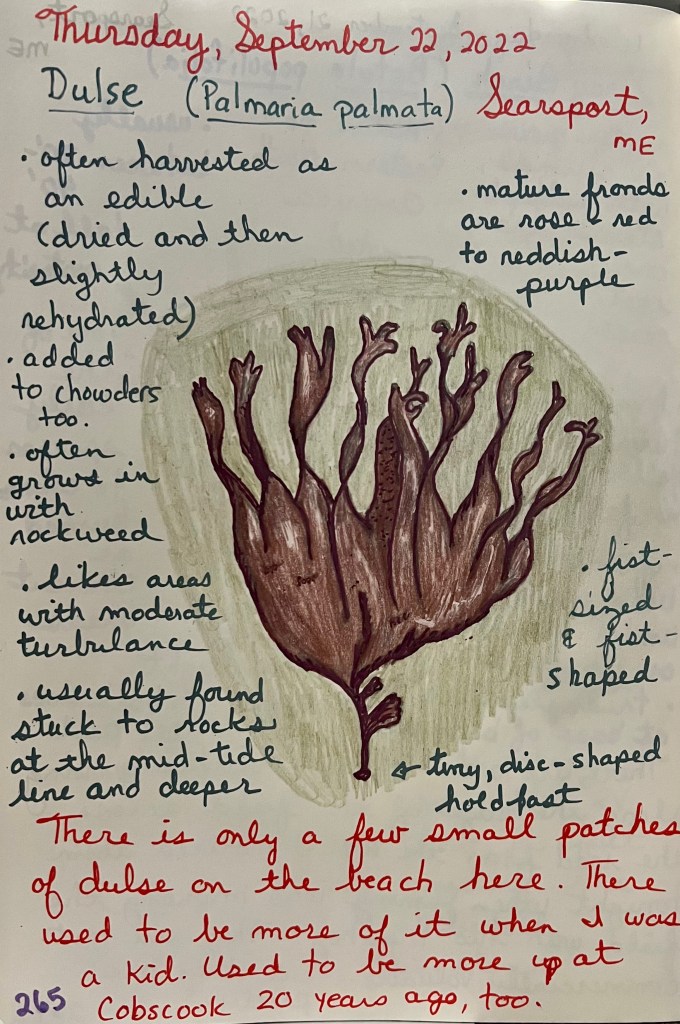 Thursday, September 22, 2022
Dulse (Palmaria palmata) Searsport,
ME
• often harvested as
an edible
(dried and then
slightly
rehydrated)
• added
to chowders
too.
• often
grows in
with
rockweed
• likes areas
with moderate
turbulance
• usually found
stuck to rocks
at the mid-tide
line and deeper
• mature fronds
are rose-red
to reddish-
purple
• fist-
sized
& fist-
shaped
← tiny, disc-shaped
holdfast
There is only a few small patches
of dulse on the beach here. There
used to be more of it when I was
a kid. Used to be more up at
Cobscook 20 years ago, too.
265